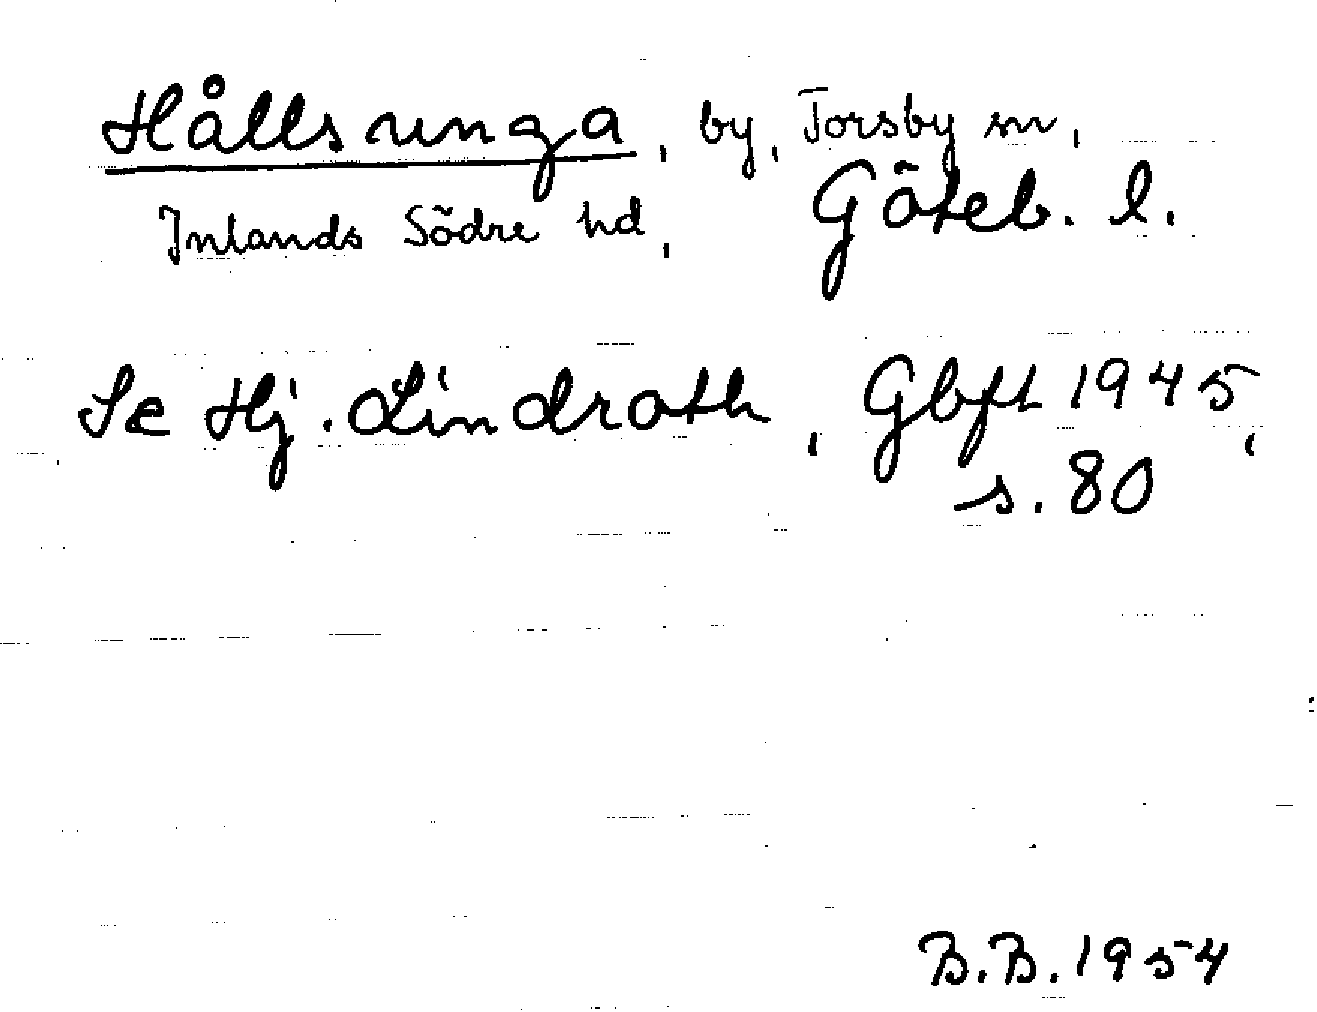 Hållsunga, by, Torsby sn,
Inlands Södre hd, Göteb. l.
Se Hj. Lindroth, Gbft 1945,
s. 80
B.B. 1954